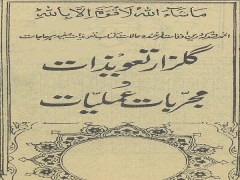 ماشاء اللہ لا قوة الا باللہ
گلزار تعویذات
و
مجربات عملیات